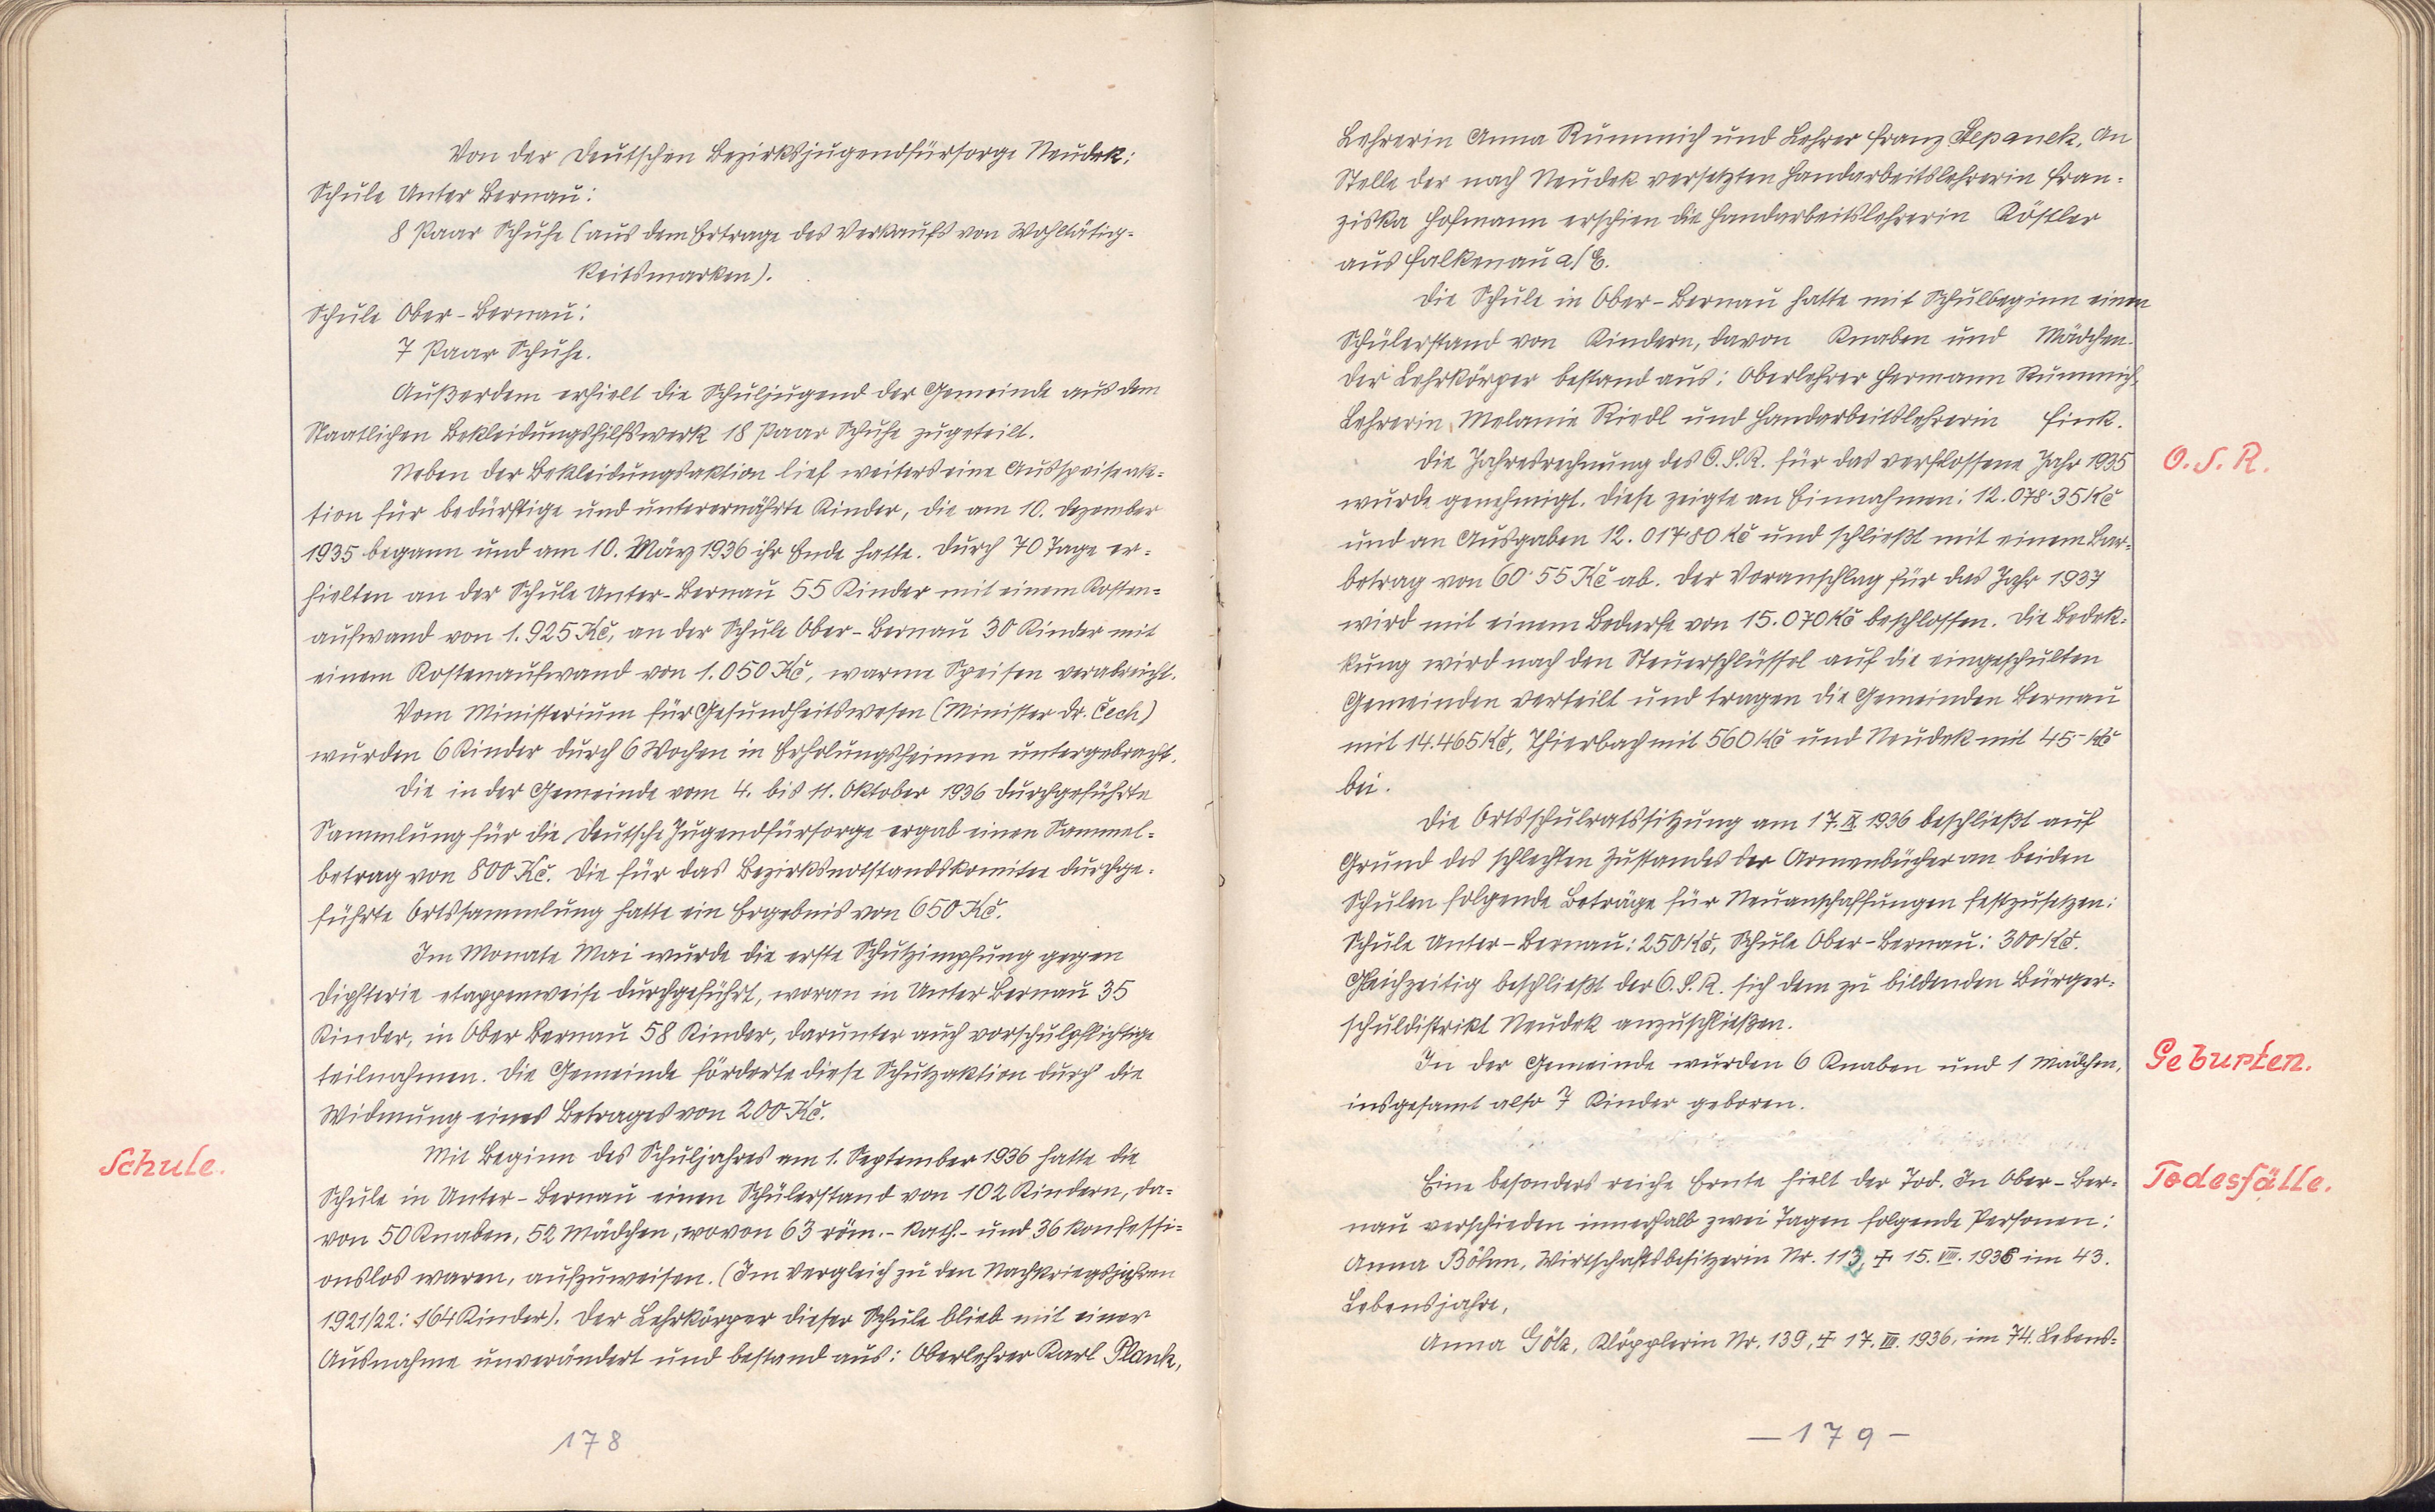 Von der Deutschen Bezirksjugendfürsorge Neudek:
Schule Unter Bernau:
8 Paar Schuhe (aus dem Ertrage des Verkaufs von Wohltätig-
keitsmarken).
Schule Ober-Bernau:
7 Paar Schuhe.
Außerdem erhielt die Schuljugend der Gemeinde aus dem
Staatlichen Bekleidungshilfswerk 18 Paar Schuhe zugeteilt.
Neben der Bekleidungsaktion lief weiters eine Ausspeiseak-
tion für bedürftige und unterernährte Kinder, die am 10. Dezember
1935 begann und am 10. März 1936 ihr Ende hatte. Durch 70 Tage er-
hielten an der Schule Unter-Bernau 55 Kinder mit einem Kosten-
aufwand von 1.925 Kč, an der Schule Ober-Bernau 30 Kinder mit
einem Kostenaufwand von 1.050 Kč, warme Speisen verabreicht.
Vom Ministerium für Gesundheitswesen (Minister Dr. Čech)
wurden 6 Kinder durch 6 Wochen in Erholungsheimen untergebracht.
Die in der Gemeinde vom 4. bis 11. Oktober 1936 durchgeführte
Sammlung für die Deutsche Jugendfürsorge ergab einen Sammel-
betrag von 800 Kč. Die für das Bezirksnotstandskomitee durchge-
führte Ortssammlung hatte ein Ergebnis von 650 Kč.
Im Monate Mai wurde die erste Schutzimpfung gegen
Diphterie etappenweise durchgeführt, woran in Unter Bernau 35
Kinder, in Ober Bernau 58 Kinder, darunter auch vorschulpflichtige
teilnahmen. Die Gemeinde förderte diese Schutzaktion durch die
Widmung eines Betrages von 200 Kč.
Schule.
Mit Beginn des Schuljahres am 1. September 1936 hatte die
Schule in Unter-Bernau einen Schülerstand von 102 Kindern, da-
von 50 Knaben, 52 Mädchen, wovon 63 röm.-kath.- und 36 konfessi-
onslos waren, aufzuweisen. (Im Vergleich zu den Nachkriegsjahren
1921/22: 164 Kinder). Der Lehrkörper dieser Schule blieb mit einer
Ausnahme unverändert und bestand aus: Oberlehrer Karl Plank,
178
Lehrerin Anna Rummich und Lehrer Franz Stepanek. An
Stelle der nach Neudek versetzten Handarbeitslehrerin Fran-
ziska Hofmann erschien die Handarbeitslehrerin Köstler
aus Falkenau a/E.
Die Schule in Ober-Bernau hatte mit Schulbeginn einen
Schülerstand von Kindern, davon Knaben und Mädchen.
Der Lehrkörper bestand aus: Oberlehrer Hermann Rummich,
Lehrerin Melanie Riedl und Handarbeitslehrerin Fink.
O.S.R.
Die Jahresrechnung des O.S.R. für das verflossene Jahr 1935
wurde genehmigt. Diese zeigte an Einnahmen: 12.078·35 Kč
und an Ausgaben 12.017·80 Kč und schließt mit einem Bar-
betrag von 60·55 Kč ab. Der Voranschlag für das Jahr 1937
wird mit einem Bedarfe von 15.070 Kč beschlossen. Die Bedek-
kung wird nach den Steuerschlüssel auf die eingeschulten
Gemeinden verteilt und tragen die Gemeinden Bernau
mit 14.465 Kč, Thierbach mit 560 Kč und Neudek mit 45- Kč
bei.
Die Ortsschulratssitzung am 17. IX. 1936 beschließt auf
Grund des schlechten Zustandes der Armenbücher an beiden
Schulen folgende Beträge für Neuanschaffungen festzusetzen:
Schule Unter-Bernau: 250 Kč, Schule Ober-Bernau: 300 Kč.
Gleichzeitig beschließt der O.S.R. sich dem zu bildenden Bürger-
schuldistrikt Neudek anzuschließen.
Geburten.
In der Gemeinde wurden 6 Knaben und 1 Mädchen,
insgesamt also 7 Kinder geboren.
Todesfälle.
Eine besonders reiche Ernte hielt der Tod. In Ober-Ber-
nau verschieden innerhalb zwei Tagen folgende Personen:
Anna Böhm, Wirtschaftsbesitzerin Nr. 113, † 15. VIII. 1936 im 43.
Lebensjahre,
Anna Götz, Klöpplerin Nr. 139, † 17. III. 1936, im 74. Lebens-
-179-